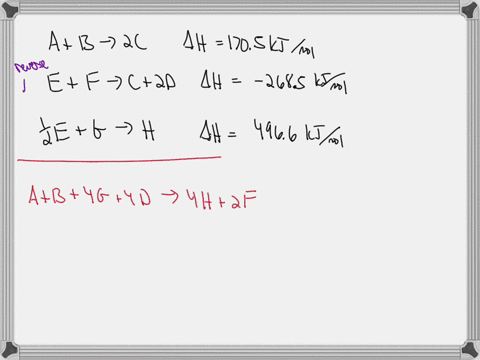 A+B → 2C ΔH = 170.5 kJ/mol
reverse
E + F → C+2D ΔH = -268.5 kJ/mol
½E + G → H ΔH = 496.6 kJ/mol
A+B+4G+4D → 4H+2F